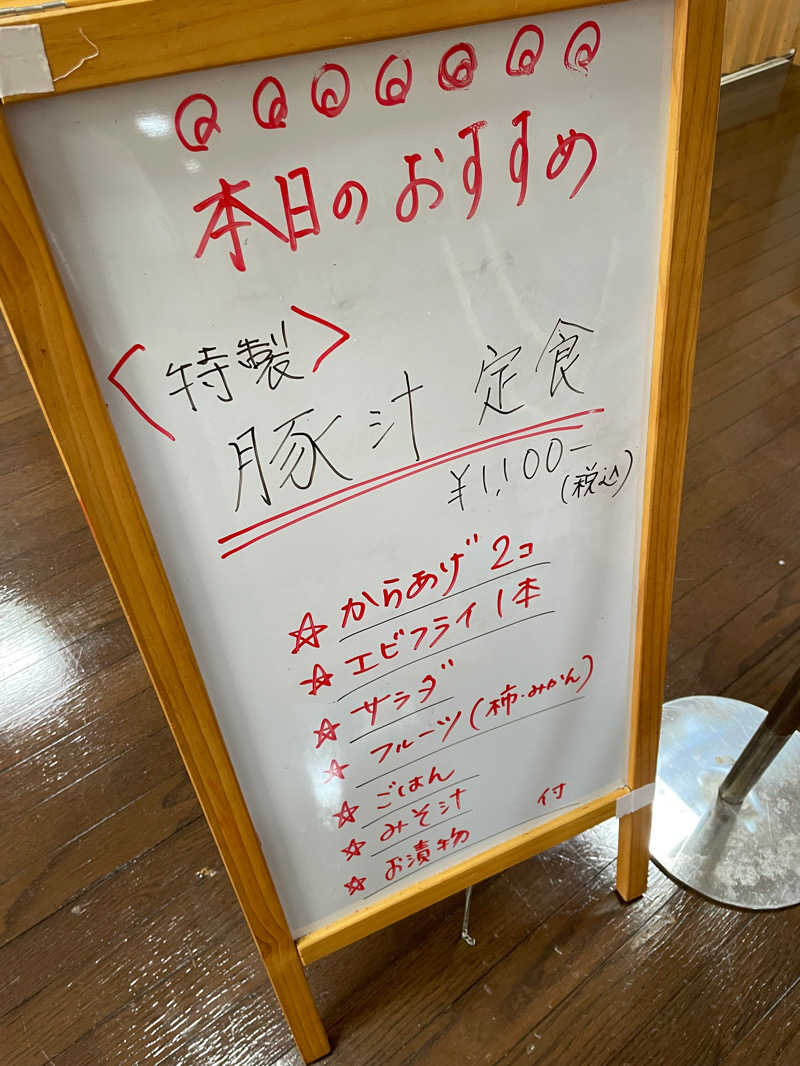 本日のおすすめ
〈特製〉
豚汁 定食
¥1,100-
(税込)
☆からあげ 2コ
☆エビフライ 1本
☆サラダ
☆フルーツ(柿・みかん)
☆ごはん
☆みそ汁
☆お漬物 付